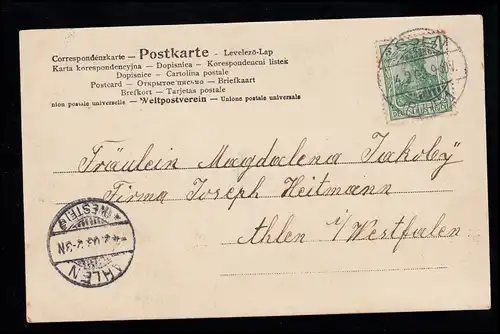 Correspondenzkarte – Postkarte – Levelező-Lap
Karta korespondencyjna – Dopisnica – Korespondencni listek
Dopisnice – Cartolina postale
Postcard – Открытое письмо – Briefkaart
Brefkort – Tarjetas postal
nion postale universelle – Weltpostverein – Unione postale universale
Fräulein Magdalena Jakoby
Firma Joseph Heitmann
Ahlen i/Westfalen
AHLEN
(WESTF.)